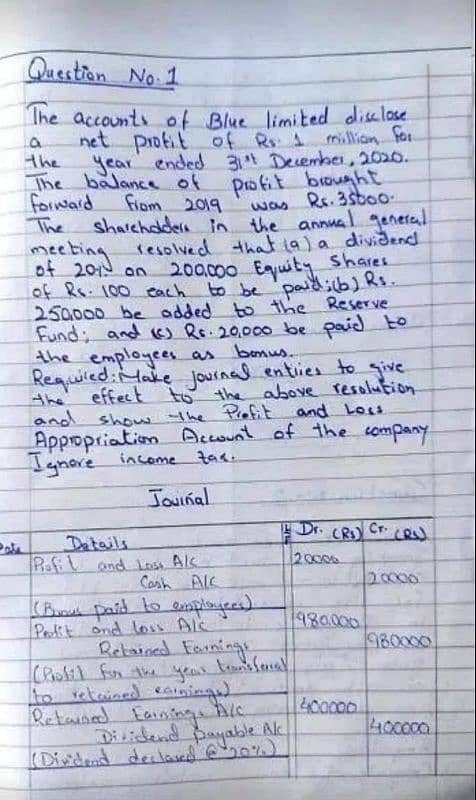 Question No. 1
The accounts of Blue limited disclose
a net profit of Rs. 1 million for
the year ended 31st December, 2020.
The balance of profit brought
forward from 2019 was Rs. 35000.
The shareholders in the annual general
meeting resolved that (a) a dividend
of on 200,000 Equity Shares
of Rs. 100 each to be paid; (b) Rs.
250,000 be added to the Reserve
Fund; and (c) Rs. 20,000 be paid to
the employees as bonus.
Required: Make journal entries to give
the effect to the above resolution
and show the Profit and Loss
Appropriation Account of the company
Ignore income tax.
Journal
Date Details Dr. (Rs) Cr. (Rs)
Profit and Loss A/c 20000
Cash A/c 20000
(Bonus paid to employees)
Profit and loss A/c 980,000
Retained Earnings 980000
(Profit for the year transferred
to retained earnings)
Retained Earnings A/c 400000
Dividend Payable A/c 400000
(Dividend declared @ 20%)